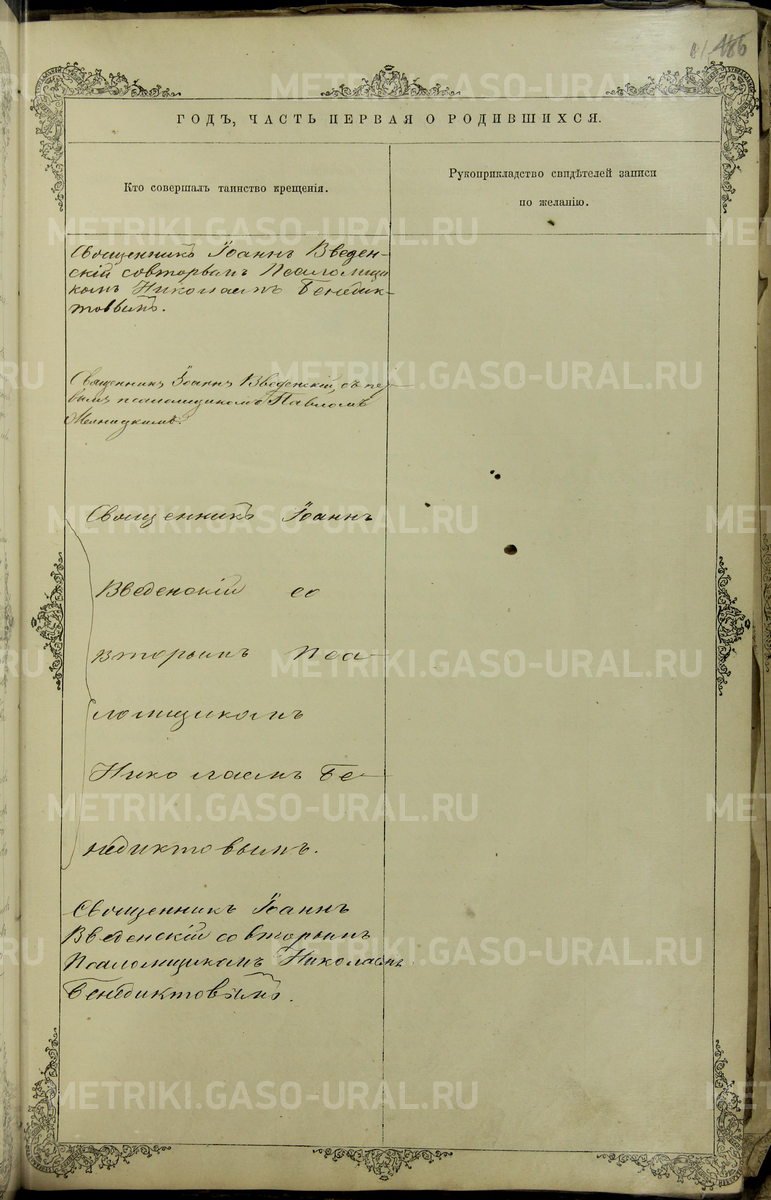 186
ГОДЪ, ЧАСТЬ ПЕРВАЯ О РОДИВШИХСЯ.
Кто совершалъ таинство крещенія.
Рукоприкладство свидѣтелей записи
по желанію.
Священникъ Іоаннъ Введен-
скій совторымъ Псаломщи
комъ Николаемъ Бенедик-
товымъ.
Священникъ Іоаннъ Введенскій, съ пер
вымъ псаломщикомъ Павломъ
Священникъ Іоаннъ
Введенскій со
вторымъ Пса-
ломщикомъ
Николаемъ Бе-
недиктовымъ.
Священникъ Іоаннъ
Введенскій со вторымъ
Псаломщикомъ Николаемъ
Бенедиктовымъ.
METRIKI.GASO-URAL.RU